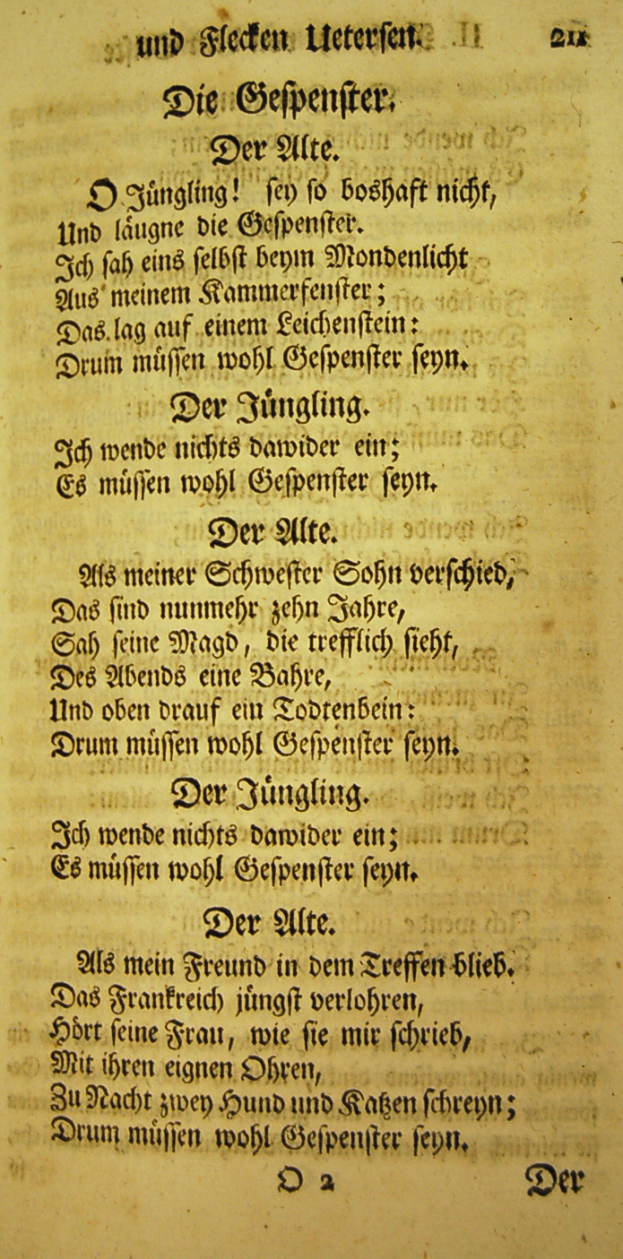 und Flecken Uetersen. 211
Die Gespenster.
Der Alte.
O Jüngling! sey so boshaft nicht,
Und läugne die Gespenster.
Ich sah eins selbst beym Mondenlicht
Aus meinem Kammerfenster;
Das lag auf einem Leichenstein:
Drum müssen wohl Gespenster seyn.
Der Jüngling.
Ich wende nichts dawider ein;
Es müssen wohl Gespenster seyn.
Der Alte.
Als meiner Schwester Sohn verschied,
Das sind nunmehr zehn Jahre,
Sah seine Magd, die trefflich sieht,
Des Abends eine Bahre,
Und oben drauf ein Todtenbein:
Drum müssen wohl Gespenster seyn.
Der Jüngling.
Ich wende nichts dawider ein;
Es müssen wohl Gespenster seyn.
Der Alte.
Als mein Freund in dem Treffen blieb.
Das Frankreich jüngst verlohren,
Hört seine Frau, wie sie mir schrieb,
Mit ihren eignen Ohren,
Zu Nacht zwey Hund und Katzen schreyn;
Drum müssen wohl Gespenster seyn.
O 2 Der